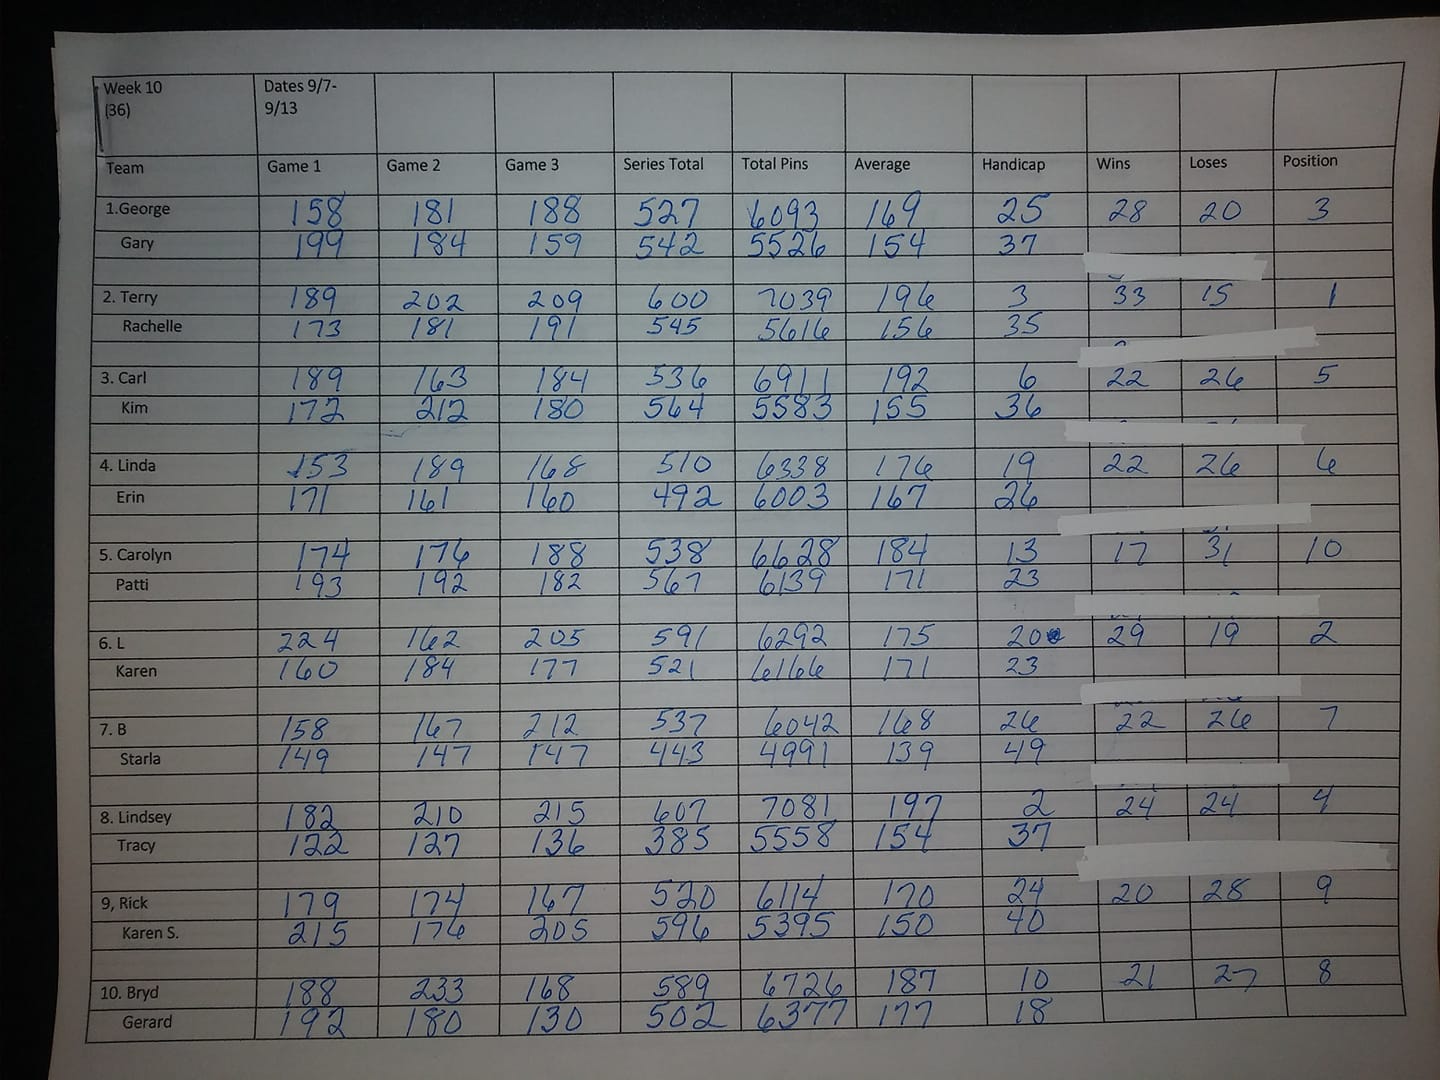 Week 10 (36) Dates 9/7-9/13
Team Game 1 Game 2 Game 3 Series Total Total Pins Average Handicap Wins Loses Position
1.George 158 181 188 527 6093 169 25 28 20 3
Gary 199 184 159 542 5526 154 37
2. Terry 189 202 209 600 7039 196 3 33 15 1
Rachelle 173 181 191 545 5616 156 35
3. Carl 189 163 184 536 6911 192 6 22 26 5
Kim 172 212 180 564 5583 155 36
4. Linda 153 189 168 510 6338 176 19 22 26 6
Erin 171 161 160 492 6003 167 26
5. Carolyn 174 176 188 538 6628 184 13 17 31 10
Patti 193 192 182 567 6139 171 23
6. L 224 162 205 591 6292 175 20 29 19 2
Karen 160 184 177 521 6166 171 23
7. B 158 167 212 537 6042 168 26 22 26 7
Starla 149 147 147 443 4991 139 49
8. Lindsey 182 210 215 607 7081 197 2 24 24 4
Tracy 122 127 136 385 5558 154 37
9, Rick 179 174 167 520 6114 170 24 20 28 9
Karen S. 215 176 205 596 5395 150 40
10. Bryd 188 233 168 589 6726 187 10 21 27 8
Gerard 192 180 130 502 6377 177 18